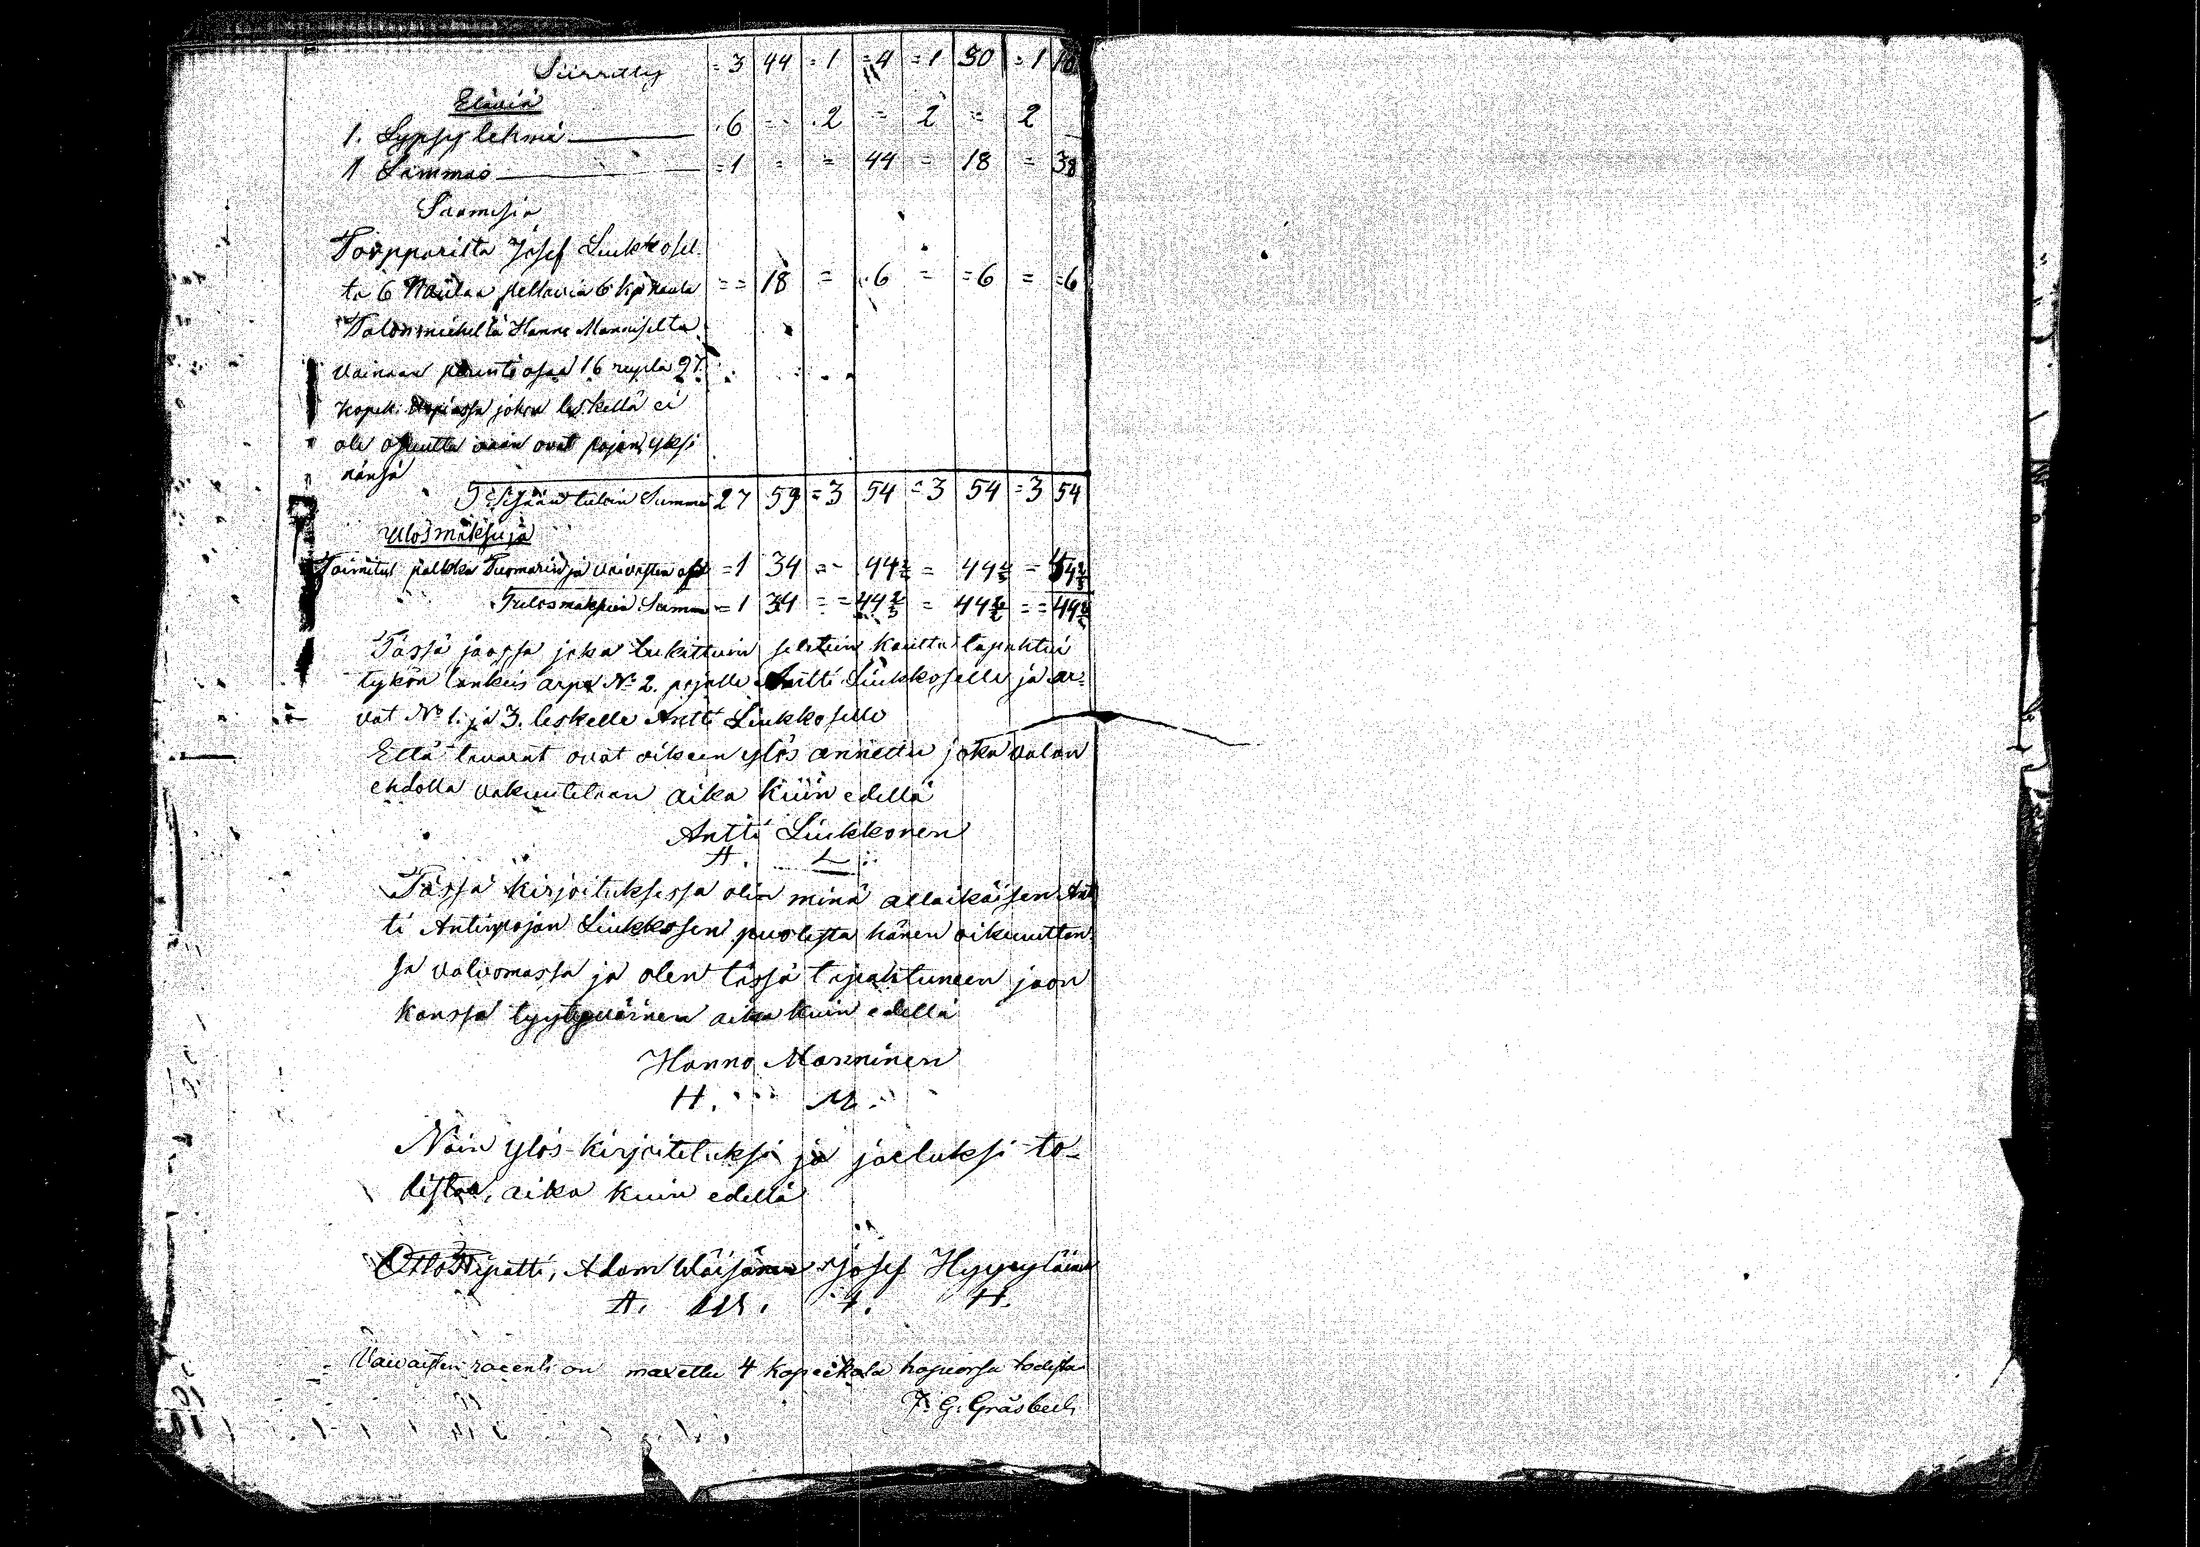 Siirretty = 3 44 = 1 = 4 = 1 30 = 1
Eläviä
1. Lypsy lehmä 6 = . 2 = 2 = 2
1 Lammas = 1 = = 44 = 18 = 38
Saamisia
Torpparilta Josef Liukkosel
ta 6 Naulaa pellavia 6 kp naula = = 18 = . 6 = = 6 = = 6
Talonmiehellä Hannu Manniselta
vainaan perintö osaa 16 rupla 27.
kopek. hopiassa johon leskellä ei
ole osuutta vaan ovat pojan yksi
nänsä
Sisään tulon Summa 27 59 = 3 54 = 3 54 = 3 54
Ulosmaksuja
Toimitus palkka Tuomarin ja vaivasten = 1 34 = - 44⅔ = 44⅔ = 44⅔
Ulosmaksun Summa = 1 34 = = 44⅔ = 44⅔ = = 44⅔
Tässä jaossa joka lukittuin seteliin kautta tapahtui
tykön lankeis arpa No 2. pojalle Antti Liukkoselle ja ar-
vat No 1. ja 3. leskelle Antti Liukkoselle
Että tavarat ovat oikeen ylös annettu joka valan
ehdolla vakuutetaan aika kuin edellä
Antti Liukkonen
A. L.
Tässä kirjoituksessa olin minä allaikäisen Ant
ti Antinpojan Liukkosen puolesta hänen oikeuttan
sa valvomassa ja olen tässä tapahtuneen jaon
kanssa tyytyväinen aika kuin edellä
Hannu Manninen
H. M.
Näin ylös-kirjoitetuksi ja jaetuksi to-
distaa, aika kuin edellä
Otto, Adam Wäisänen Josef Hyyryläinen
A. W. J. H.
Vaivasten rosenti on maxettu 4 kopeekata hopeassa todistaa
F. G. Gräsbeck